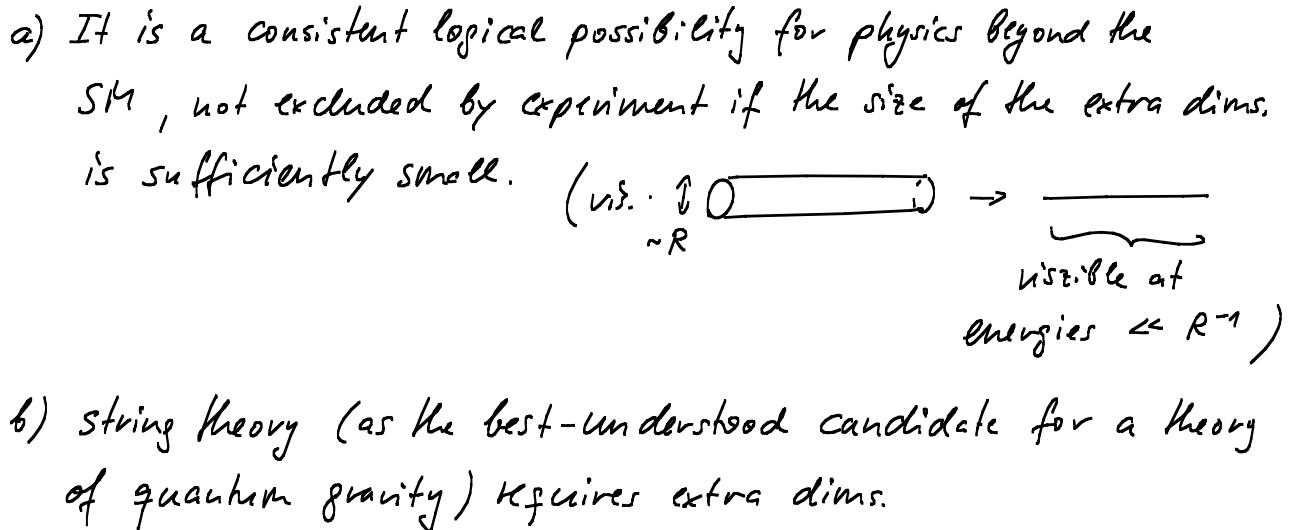 a) It is a consistent logical possibility for physics beyond the
SM, not excluded by experiment if the size of the extra dims.
is sufficiently small. (vis. : ↕ → 
~R
viszible at
energies << R⁻¹ )
b) string theory (as the best-understood candidate for a theory
of quantum gravity) requires extra dims.